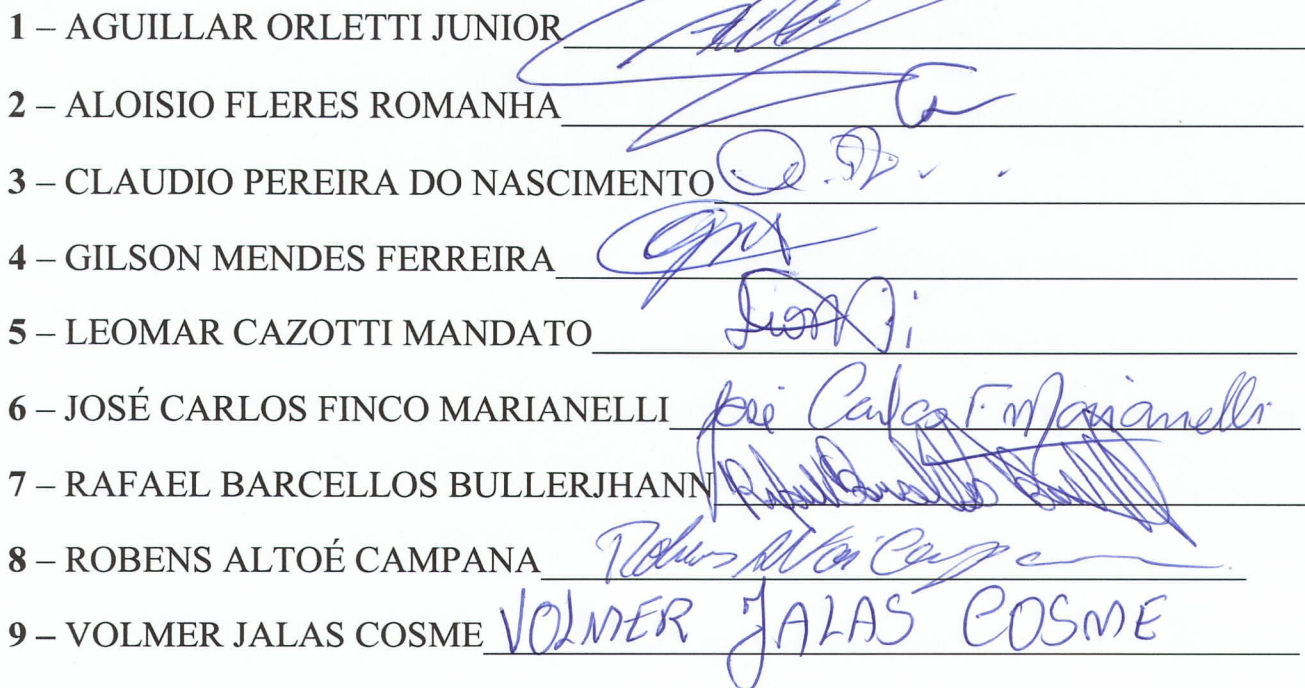 1 – AGUILLAR ORLETTI JUNIOR
2 – ALOISIO FLERES ROMANHA
3 – CLAUDIO PEREIRA DO NASCIMENTO
4 – GILSON MENDES FERREIRA
5 – LEOMAR CAZOTTI MANDATO
6 – JOSÉ CARLOS FINCO MARIANELLI José Carlos F. Marianelli
7 – RAFAEL BARCELLOS BULLERJHANN Rafael Barcellos
8 – ROBENS ALTOÉ CAMPANA
9 – VOLMER JALAS COSME VOLMER JALAS COSME